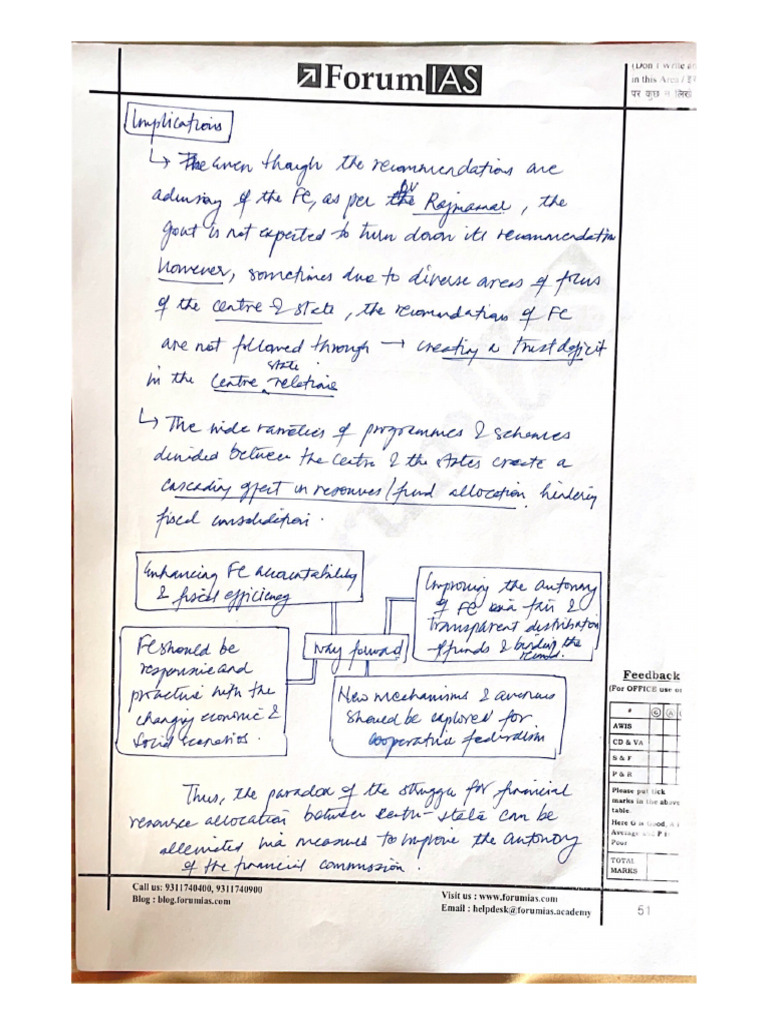 ForumIAS
(Don't Write an
in this Area / इ
पर कुछ न लिखें
Implications
↳ The even though the recommendations are
advisory of the FC, as per the PV Rajmanar, the
govt is not expected to turn down its recommendation
however, sometimes due to diverse areas of focus
of the centre & state, the recomendations of FC
are not followed through → creating a trust deficit
in the Centre state relations
↳ The wide varieties of programmes & schemes
divided between the centre & the states create a
cascading effect in resources/fund allocation hindering
fiscal consolidation.
Enhancing FC accountability
& fiscal efficiency
Improving the autonomy
of FC via fair &
transparent distribution
of funds & binding the
FC should be
responsive and
proactive with the
changing economic &
social scenarios.
Way forward
New mechanisms & avenues
should be explored for
cooperative federalism
Thus, the paradox of the struggle for financial
resource allocation between centre-state can be
alleviated via measures to improve the autonomy
of the financial commission.
Feedback
(For OFFICE use o
# G A
AWIS
CD & VA
S & F
P & R
Please put tick
marks in the above
table.
Here G is Good, A i
Average and P i
Poor
TOTAL
MARKS
Call us: 9311740400, 9311740900
Blog : blog.forumias.com
Visit us : www.forumias.com
Email : helpdesk@forumias.academy
51